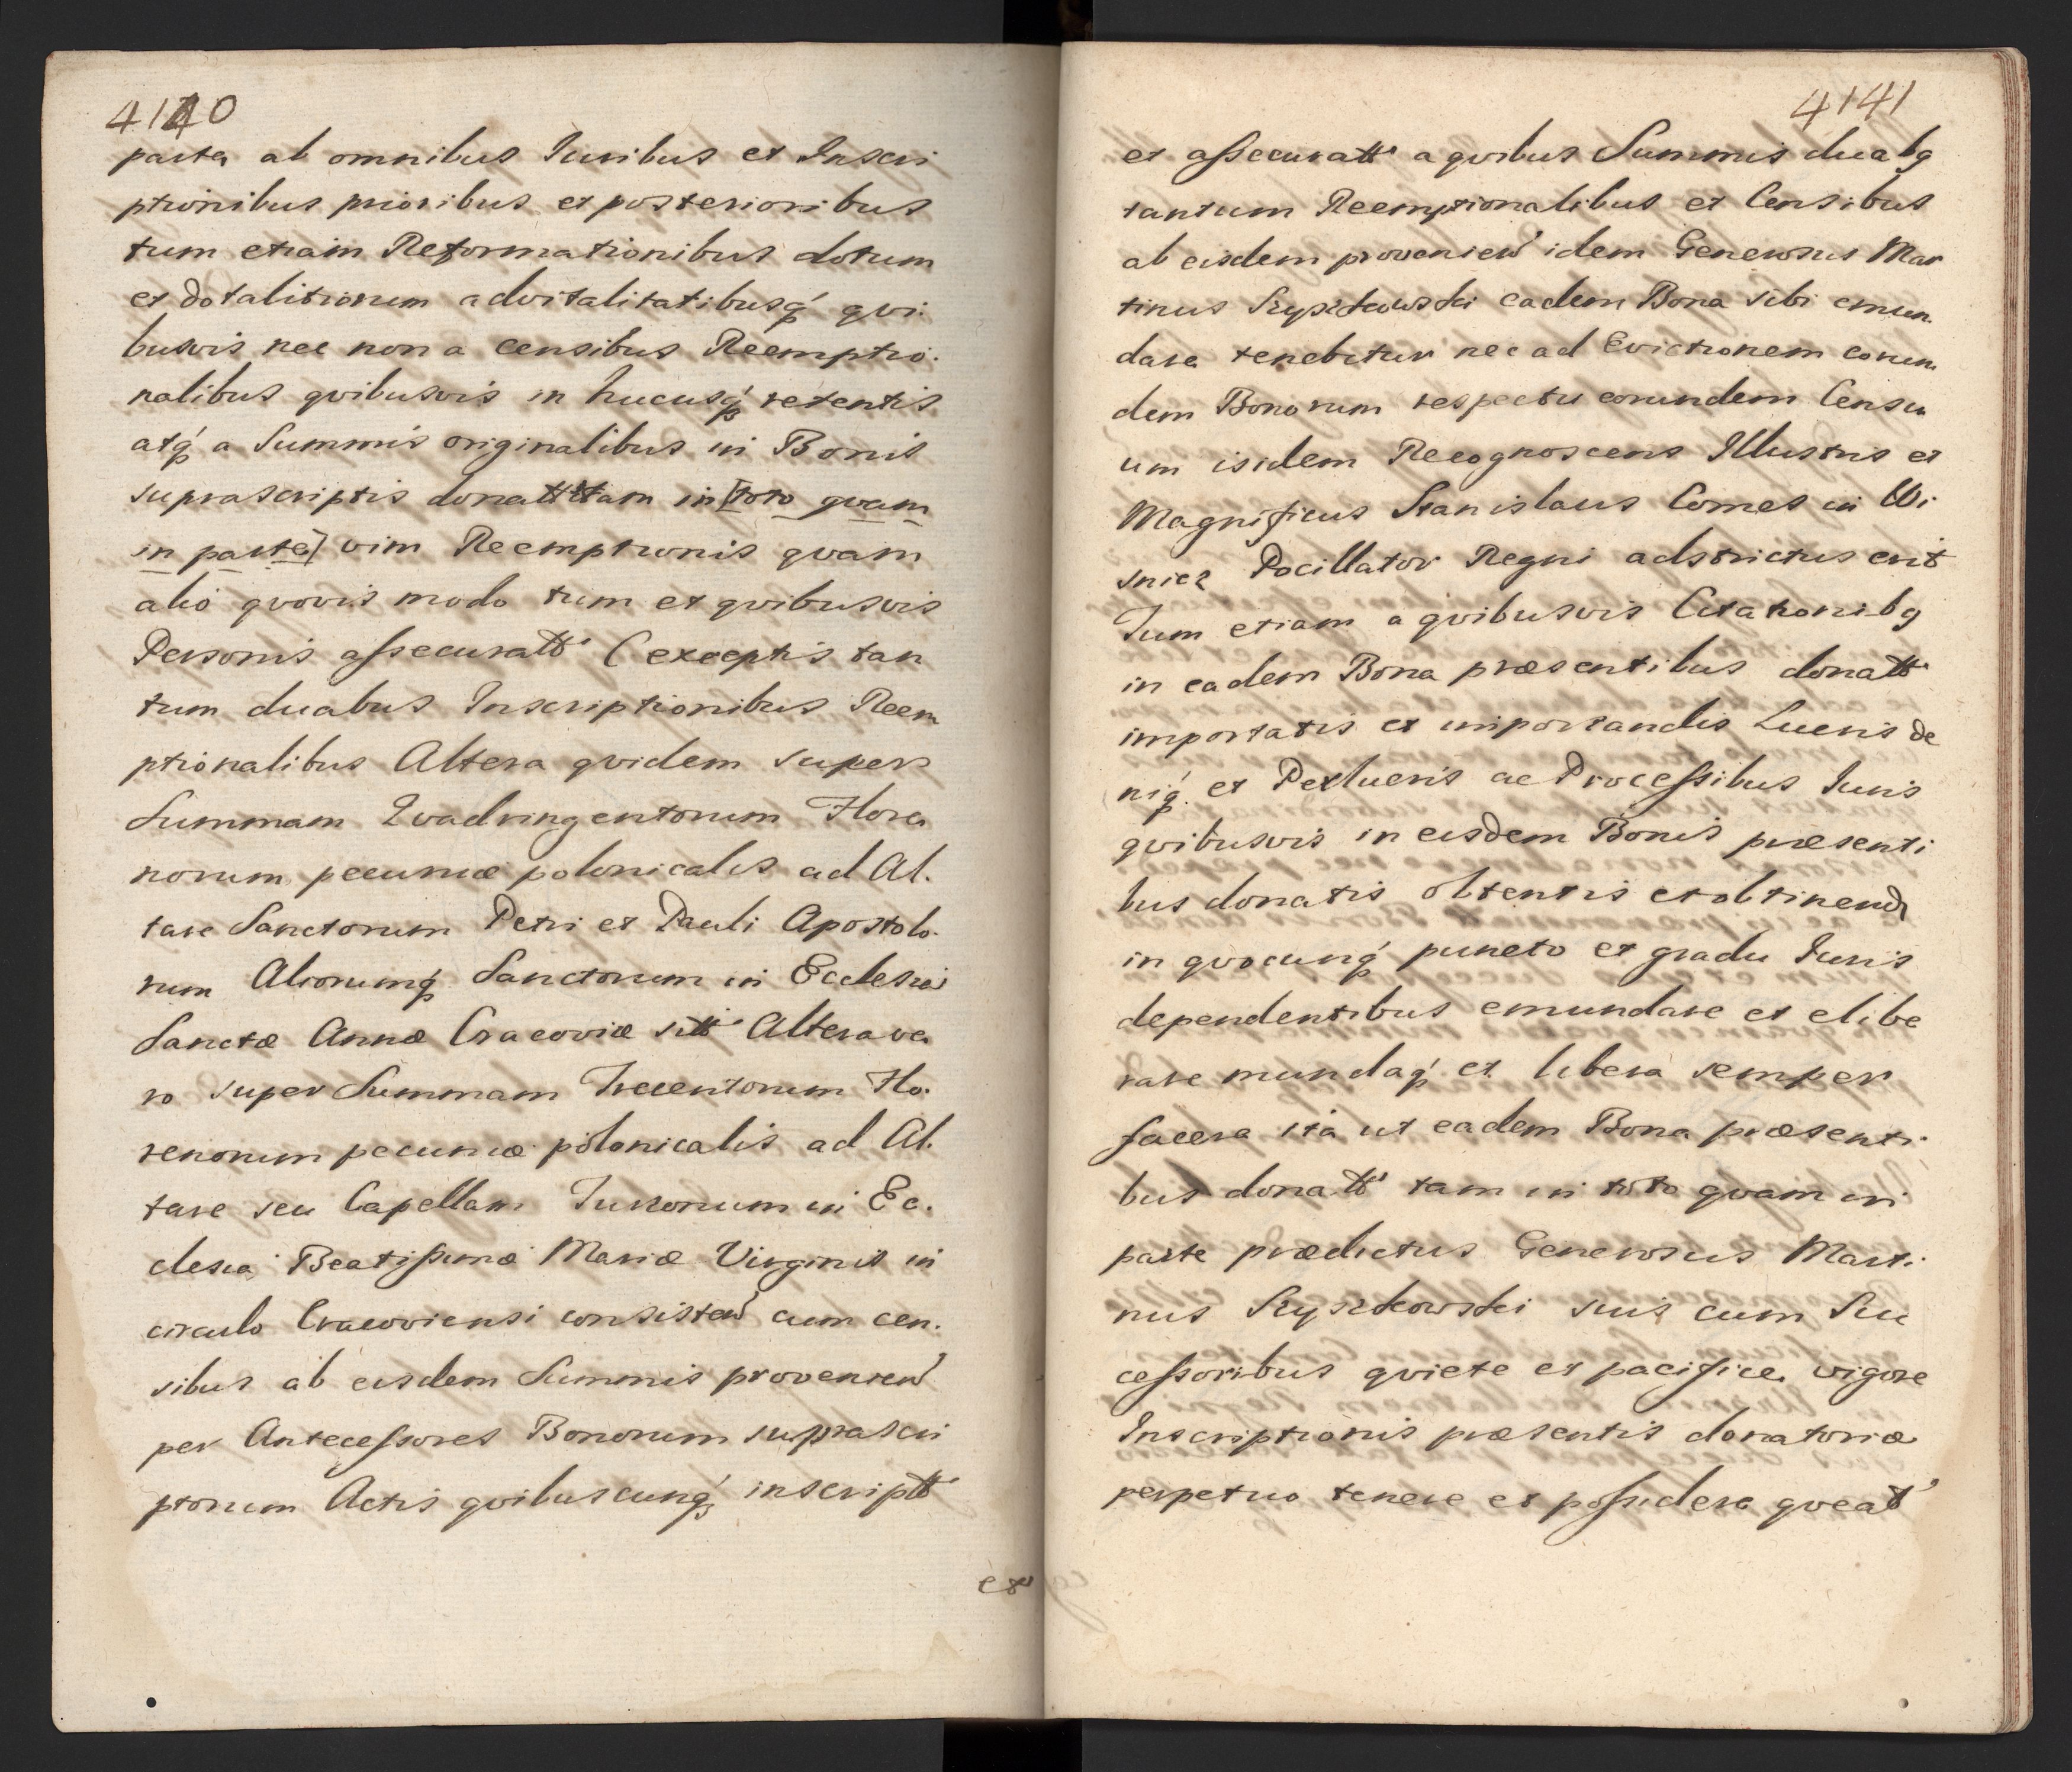 4140
parte ab omnibus Juribus et Inscri
ptionibus prioribus et posterioribus
tum etiam Reformationibus dotum
et dotalitiorum advitalitatibusq́ qvi.
busvis nec non a censibus Reemptio.
nalibus qvibusvis in hucusq́ retentis
atq́ a Summis originalibus in Bonis
suprascriptis donatt tam in [toto qvam
in parte] vim Reemptionis qvam
alio qvovis modo tum et qvibusvis
Personis assecuratt (exceptis tan
tum duabus Inscriptionibus Reem
ptionalibus Altera qvidem super
Summam Qvadringentorum Flore
norum pecuniæ polonicalis ad Al.
tare Sanctorum Petri et Pauli Apostolo.
rum Aliorumq́ Sanctorum in Ecclesia
Sanctæ Annæ Cracoviæ sitt Altera ve
ro super Summam Trecentorum Flo.
renorum pecuniæ polonicalis ad Al.
tare seu Capellam Turzonum in Ec.
clesia Beatissimæ Mariæ Virginis in
circulo Cracoviensi consisten cum cen.
sibus ab eisdem Summis provenien
per Antecessores Bonorum suprascri
ptorum Actis qvibuscunq́ inscriptt
et
4141
et assecuratt a qvibus Summis duabq
tantum Reemptionalibus et Censibus
ab eisdem provenien idem Generosus Mar
tinus Szyszkowski eadem Bona sibi emun
dare tenebitur nec ad Evictionem eorun
dem Bonorum respectu eorundem Censu
um isidem Recognoscens Illustris et
Magnificus Stanislaus Comes in Wi
snicz Pocillator Regni adstrictus erit
Tum etiam a qvibusvis Citationibq
in eadem Bona præsentibus donatt
importatis et importandis Lucris de
niq́. et Perlucris ac Processibus Juris
qvibusvis in eisdem Bonis præsenti
bus donatis obtentis et obtinend
in qvocunq́ puncto et gradu Juris
dependentibus emundare et elibe
rare mundaq́ et libera semper
facere ita ut eadem Bona præsenti
bus donatt tam in toto qvam in
parte prædictus Generosus Marti
nus Szyszkowski suis cum Suc
cessoribus qviete et pacifice vigore
Inscriptionis præsentis donatoriæ
perpetuo tenere et possidere qveat